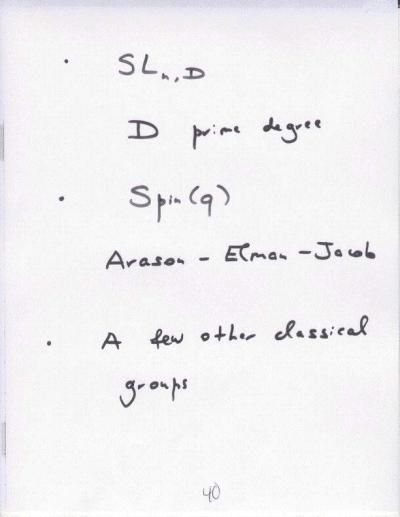 • SLn,D
D prime degree
• Spin(q)
Arason - Elman - Jacob
• A few other classical
groups
40